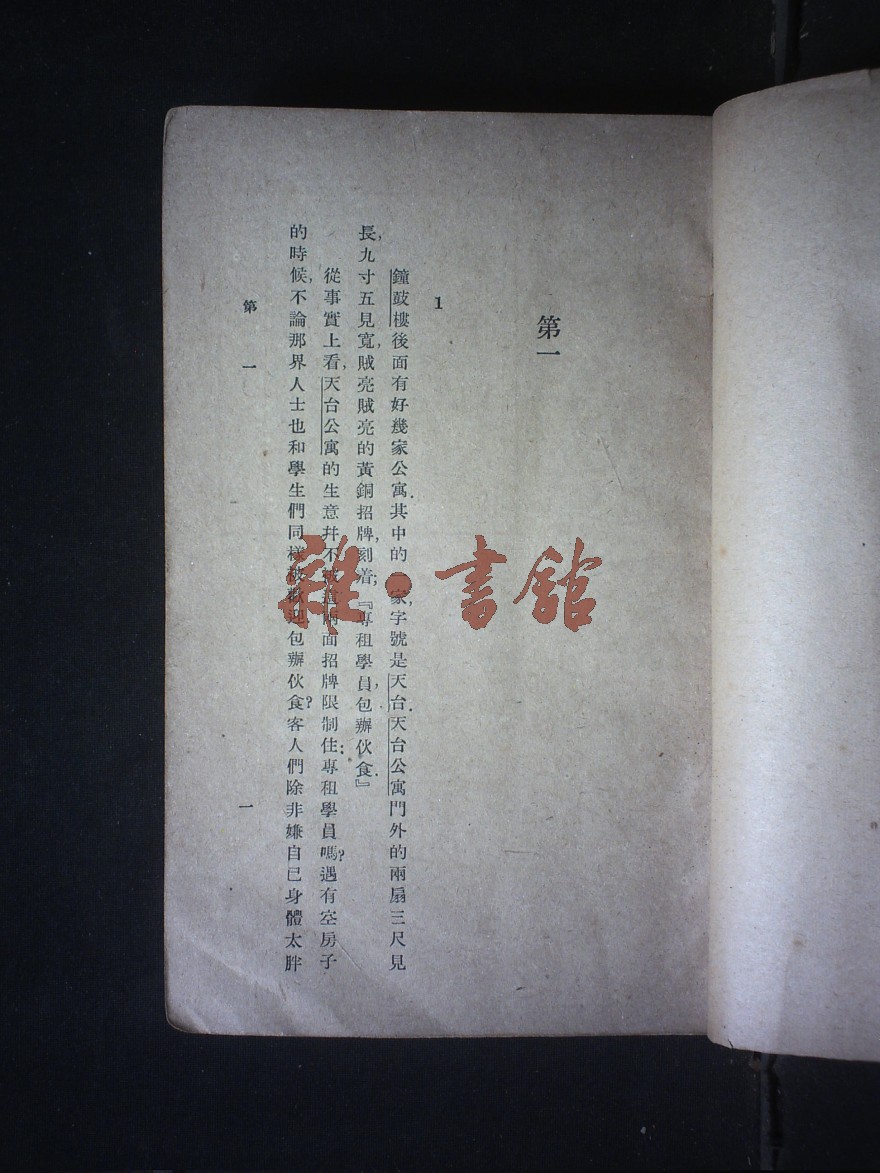 第一
1
鐘鼓樓後面有好幾家公寓.其中的 家,字號是天台.天台公寓門外的兩扇三尺見
長,九寸五見寬,賊亮賊亮的黃銅招牌,刻着:『專租學員,包辦伙食.』
從事實上看,天台公寓的生意幷不被這兩面招牌限制住:專租學員嗎?遇有空房子
的時候,不論那界人士也和學生們同樣被歡迎包辦伙食?客人們除非嫌自己身體太胖
第 一
一
雜·書館